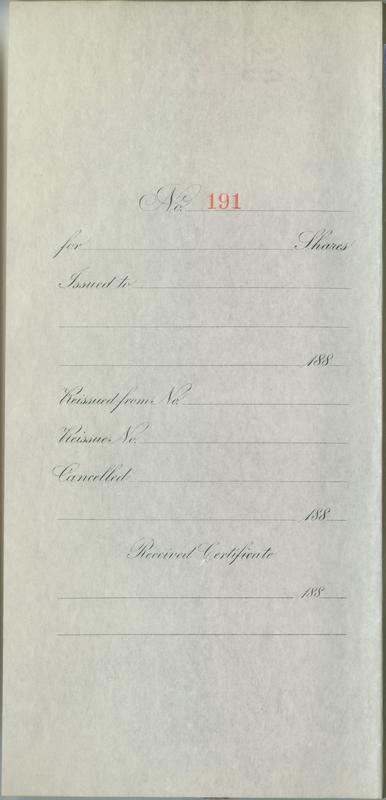 No. 191
for Shares
Issued to
188
Reissued from No.
Reissue No.
Cancelled
188
Received Certificate
188